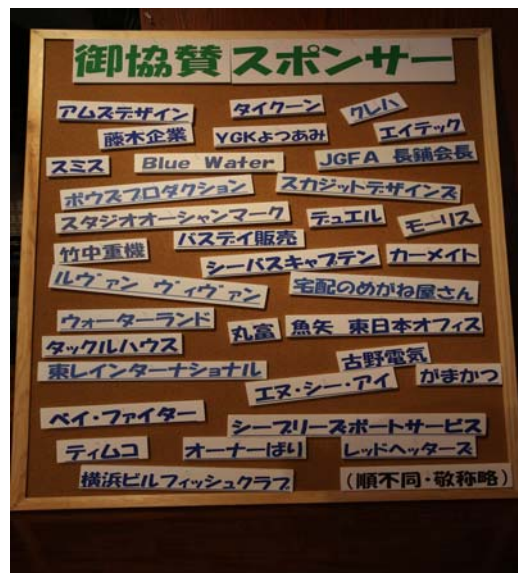 御協賛 スポンサー
アムズデザイン
タイクーン
クレハ
藤木企業
YGKよつあみ
エイテック
スミス
Blue Water
JGFA 長鋪会長
ボウズプロダクション
スカジットデザインズ
スタジオオーシャンマーク
デュエル
モーリス
竹中重機
バスデイ販売
シーバスキャプテン
カーメイト
ルヴァン ヴィヴァン
宅配のめがね屋さん
ウォーターランド
丸富
魚矢 東日本オフィス
タックルハウス
古野電気
東レインターナショナル
エヌ・シー・アイ
がまかつ
ベイ・ファイター
シーブリーズボートサービス
ティムコ
オーナーばり
レッドヘッターズ
横浜ビルフィッシュクラブ
(順不同・敬称略)